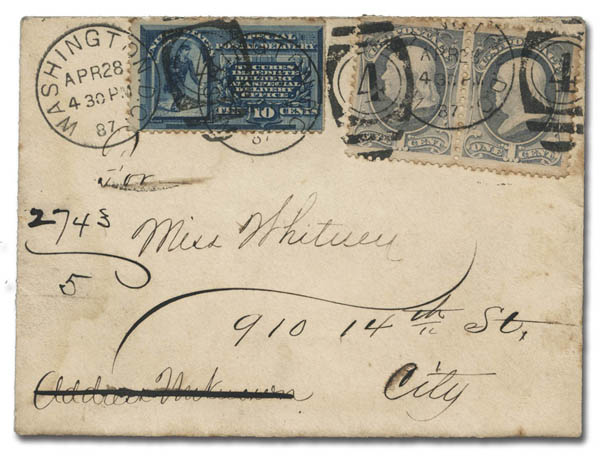 WASHINGTON D.C.
APR 28
4 30 PM
87
SPECIAL POSTAL DELIVERY
SECURES
IMMEDIATE
DELIVERY
AT A SPECIAL
DELIVERY
OFFICE
TEN 10 CENTS
APR 28
4 30 PM
87
4
4
1 CENT
ONE 1 CENT
2743
5
Miss Whitney
910 14th St,
City
Address Unknown